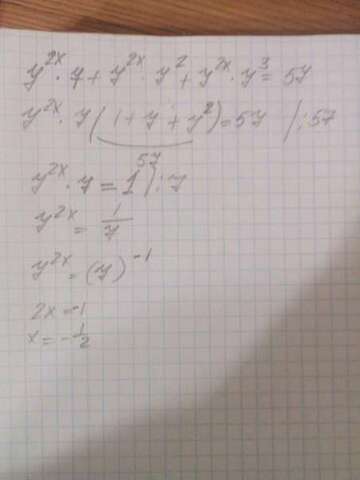 7^{2x}·7+7^{2x}·7^2+7^{2x}·7^3=57
7^{2x}·7(1+7+7^2)=57 /:57
57
7^{2x}·7=1 /:7
7^{2x}=1/7
7^{2x}=(7)^{-1}
2x=-1
x=-1/2